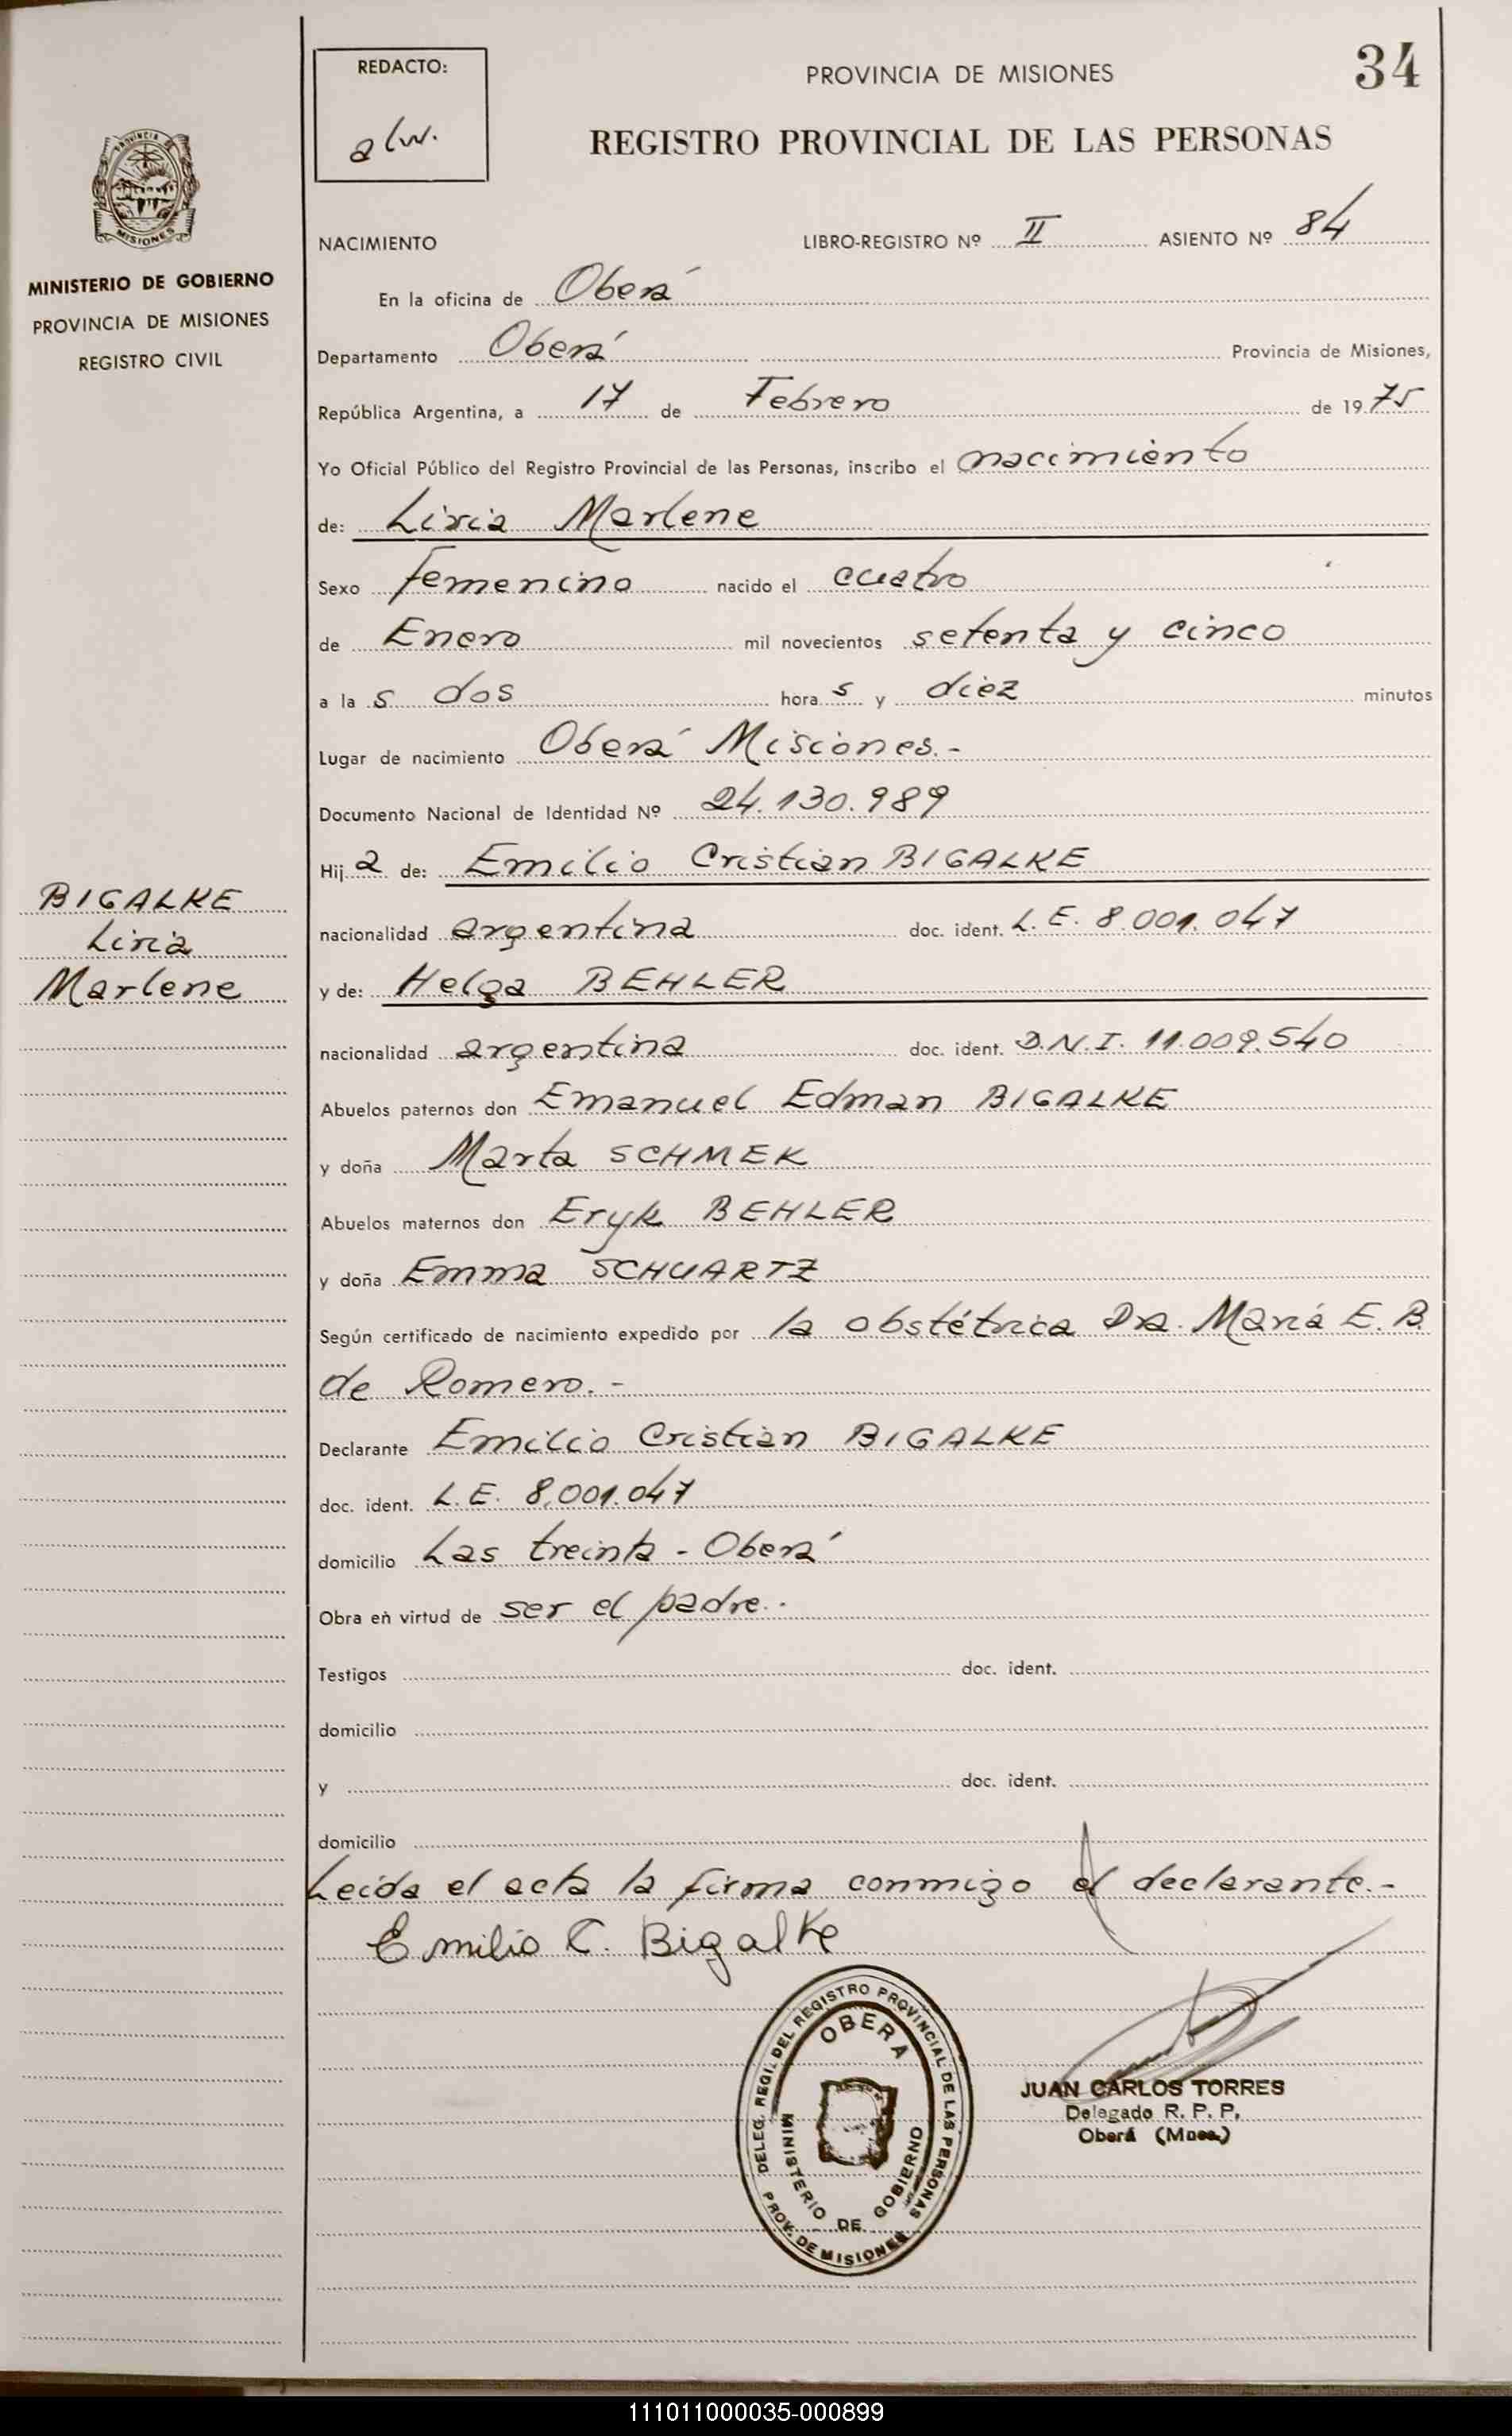 34
REDACTO:
alw.
PROVINCIA DE MISIONES
REGISTRO PROVINCIAL DE LAS PERSONAS
PROVINCIA
MISIONES
MINISTERIO DE GOBIERNO
PROVINCIA DE MISIONES
REGISTRO CIVIL
NACIMIENTO LIBRO-REGISTRO Nº II ASIENTO Nº 84
En la oficina de Oberá
Departamento Oberá Provincia de Misiones,
República Argentina, a 17 de Febrero de 1975
Yo Oficial Público del Registro Provincial de las Personas, inscribo el nacimiento
de: Liria Marlene
Sexo femenino nacido el cuatro
de Enero mil novecientos setenta y cinco
a la s dos hora s y diez minutos
Lugar de nacimiento Oberá Misiones.-
Documento Nacional de Identidad Nº 24.130.989
Hij a de: Emilio Cristian BIGALKE
BIGALKE
Liria
Marlene
nacionalidad argentina doc. ident. L.E. 8.001.047
y de: Helga BEHLER
nacionalidad argentina doc. ident. D.N.I. 11.009.540
Abuelos paternos don Emanuel Edman BIGALKE
y doña Marta SCHMEK
Abuelos maternos don Eryk BEHLER
y doña Emma SCHUARTZ
Según certificado de nacimiento expedido por la obstétrica Dra. María E. B.
de Romero.-
Declarante Emilio Cristian BIGALKE
doc. ident. L.E. 8.001.047
domicilio Las treinta - Oberá
Obra en virtud de ser el padre.
Testigos doc. ident.
domicilio
y doc. ident.
domicilio
Leída el acta la firma conmigo el declarante.-
Emilio C. Bigalke
DELEG. REGI. DEL REGISTRO PROVINCIAL DE LAS PERSONAS
OBERA
MINISTERIO DE GOBIERNO
PROV. DE MISIONES
JUAN CARLOS TORRES
Delegado R. P. P.
Oberá (Mnes.)
111011000035-000899